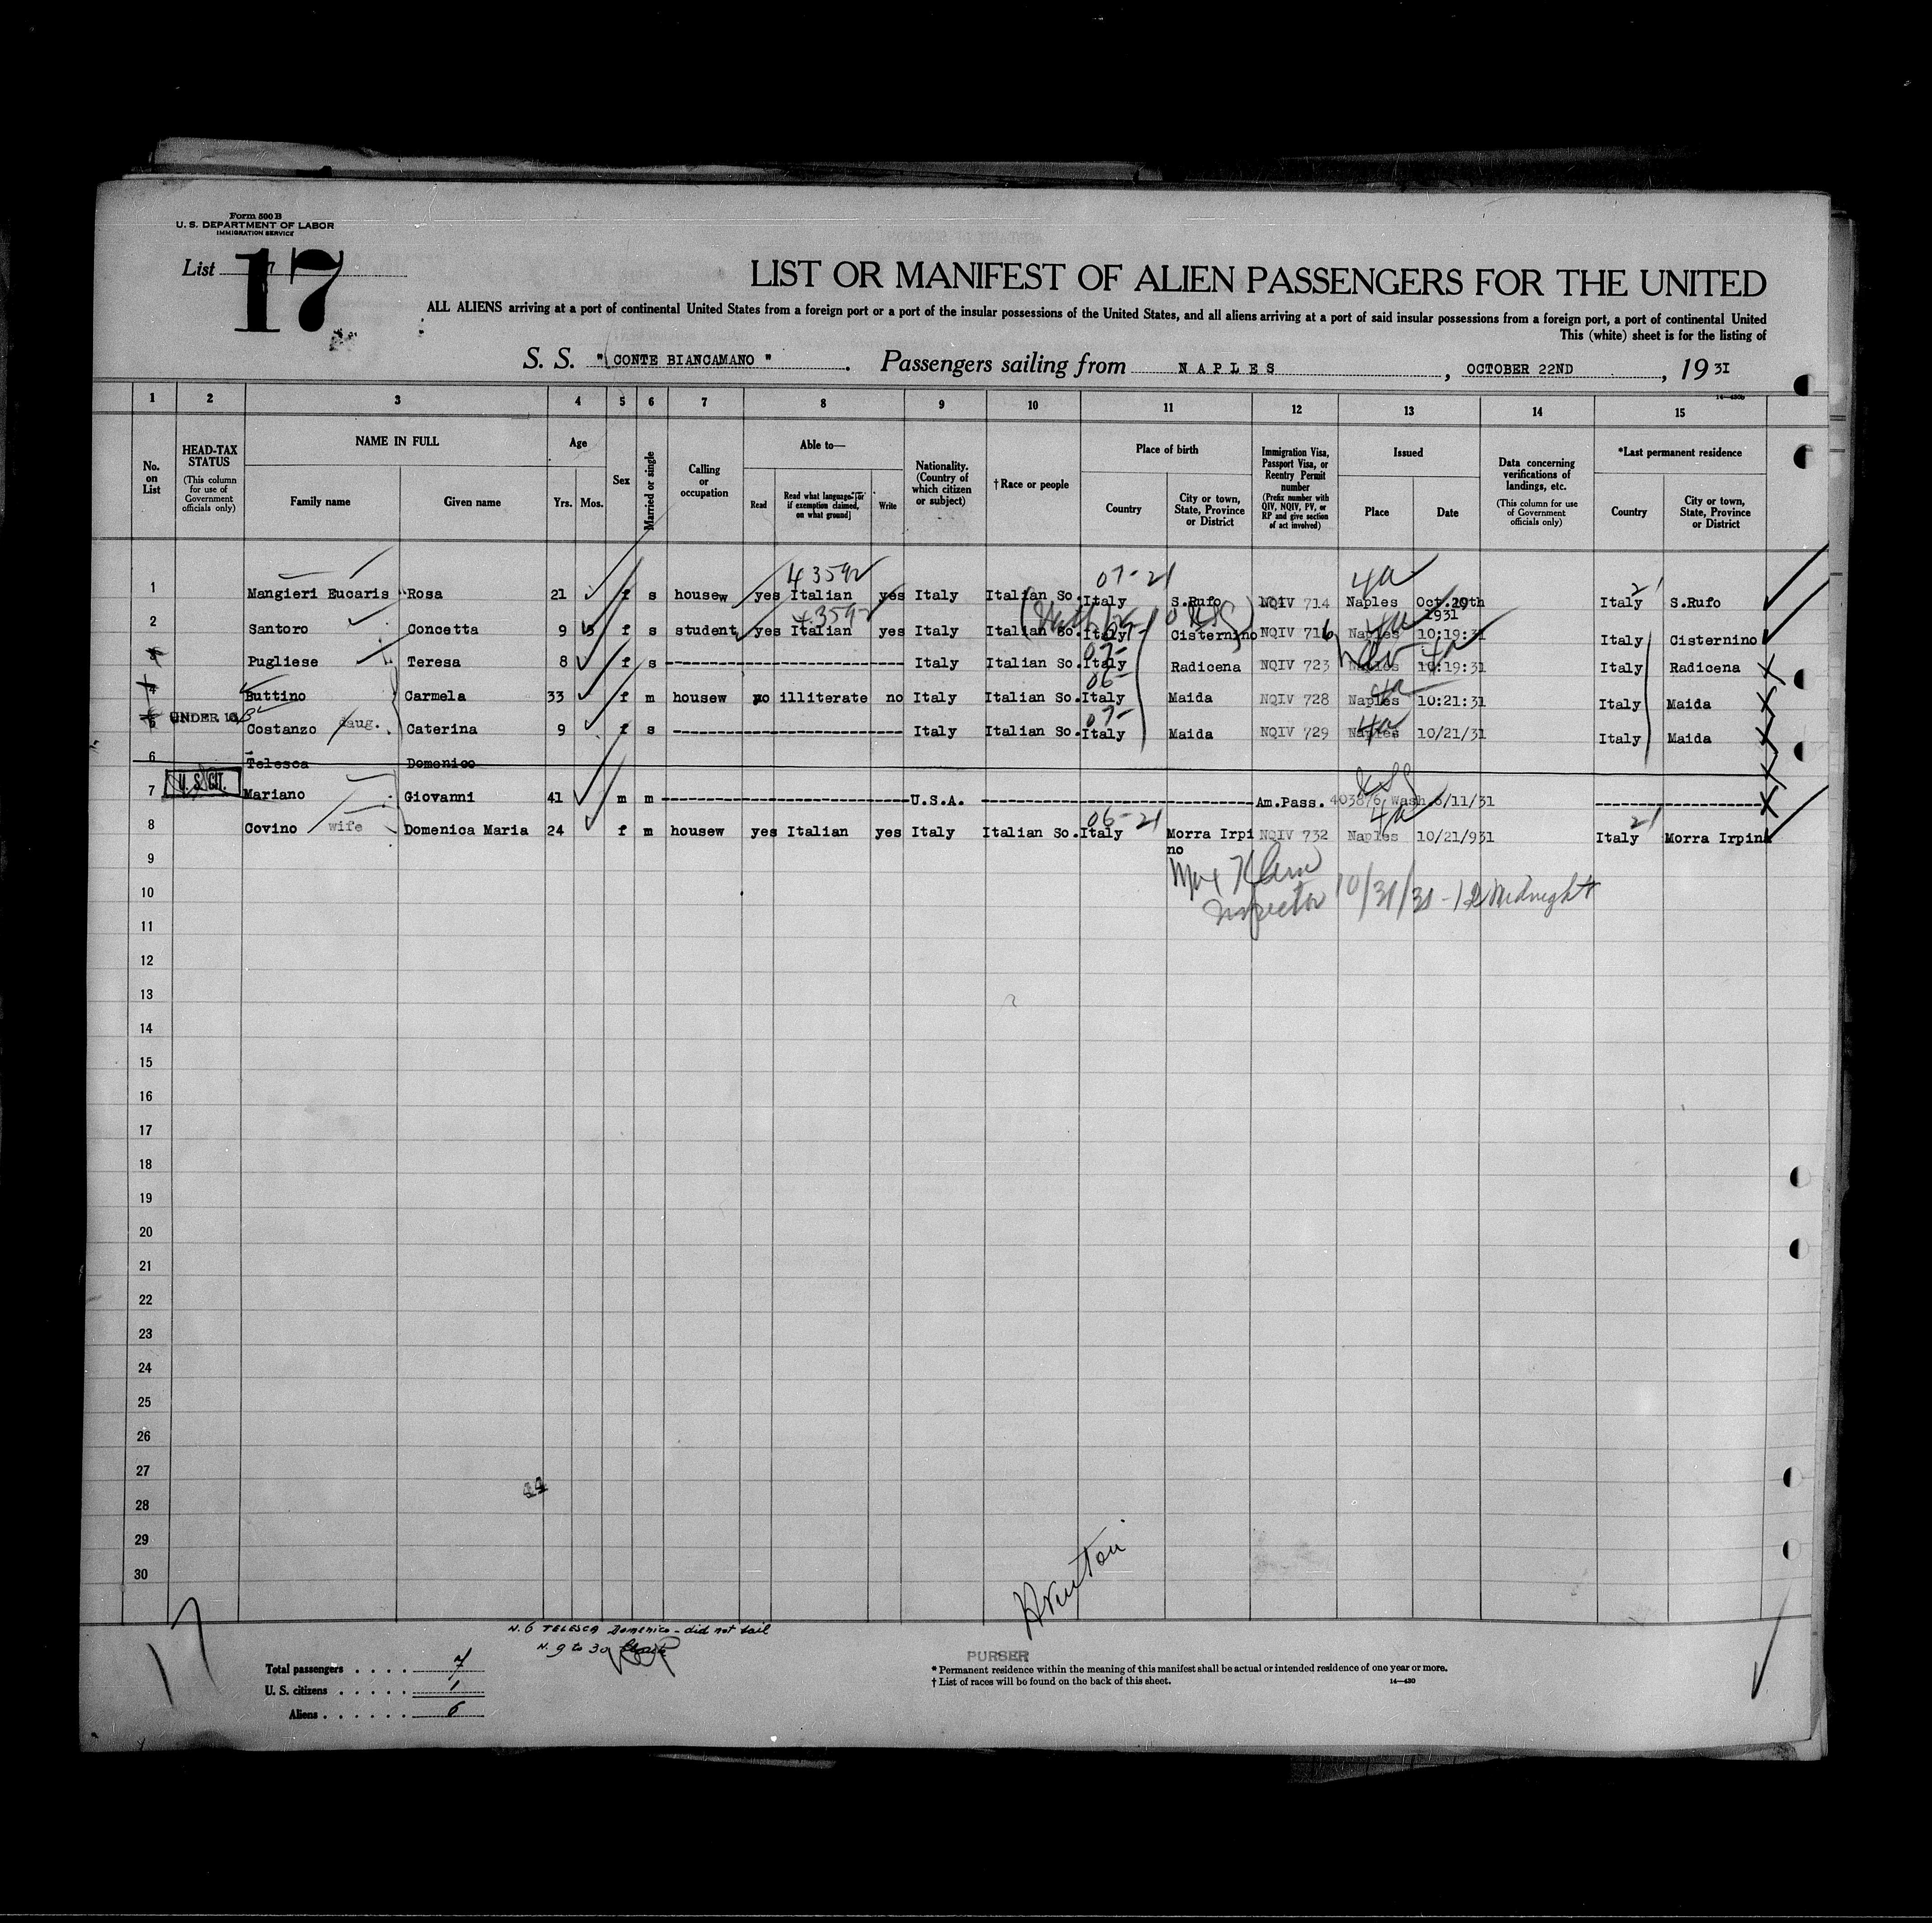 Form 500 B
U. S. DEPARTMENT OF LABOR
IMMIGRATION SERVICE
List 17
LIST OR MANIFEST OF ALIEN PASSENGERS FOR THE UNITED
ALL ALIENS arriving at a port of continental United States from a foreign port or a port of the insular possessions of the United States, and all aliens arriving at a port of said insular possessions from a foreign port, a port of continental United
This (white) sheet is for the listing of
S. S. " CONTE BIANCAMANO " . Passengers sailing from NAPLES , OCTOBER 22ND , 19 31
14—430b
1 2 3 4 5 6 7 8 9 10 11 12 13 14 15
No. on List
HEAD-TAX STATUS
(This column for use of Government officials only)
NAME IN FULL
Family name Given name
Age
Yrs. Mos.
Sex
Married or single
Calling or occupation
Able to—
Read
Read what language [or if exemption claimed, on what ground]
Write
Nationality. (Country of which citizen or subject)
†Race or people
Place of birth
Country
City or town, State, Province or District
Immigration Visa, Passport Visa, or Reentry Permit number
(Prefix number with QIV, NQIV, PV, or RP and give section of act involved)
Issued
Place Date
Data concerning verifications of landings, etc.
(This column for use of Government officials only)
*Last permanent residence
Country
City or town, State, Province or District
43592 07-21 4a 2
1 Mangieri Eucaris Rosa 21 f s housew yes Italian yes Italy Italian So. Italy S.Rufo NQIV 714 Naples Oct. 19th 1931 Italy S.Rufo
43592 4a
2 Santoro Concetta 9 f s student yes Italian yes Italy Italian So. Italy Cisternino NQIV 716 Naples 10:19:31 Italy Cisternino
07- 4a
3 Pugliese Teresa 8 f s Italy Italian So. Italy Radicena NQIV 723 Naples 10:19:31 Italy Radicena
06- 4a
4 Buttino Carmela 33 f m housew no illiterate no Italy Italian So. Italy Maida NQIV 728 Naples 10:21:31 Italy Maida
07- 4a
5 UNDER 16 Costanzo daug. Caterina 9 f s Italy Italian So. Italy Maida NQIV 729 Naples 10/21/31 Italy Maida
6 Telesca Domenico
7 U. S. CIT. Mariano Giovanni 41 m m U.S.A. Am.Pass. 403876 Wash. 6/11/31
06-21 4a 21
8 Covino wife Domenica Maria 24 f m housew yes Italian yes Italy Italian So. Italy Morra Irpino NQIV 732 Naples 10/21/931 Italy Morra Irpino
9
Inspector 10/31/31 - 12 Midnight
10
11
12
13
14
15
16
17
18
19
20
21
22
23
24
25
26
27
44
28
29
30
17
N. 6 TELESCA Domenico - did not sail
N. 9 to 30
Total passengers . . . . 7
U. S. citizens . . . . . 1
Aliens . . . . . . 6
PURSER
* Permanent residence within the meaning of this manifest shall be actual or intended residence of one year or more.
† List of races will be found on the back of this sheet.
14—430